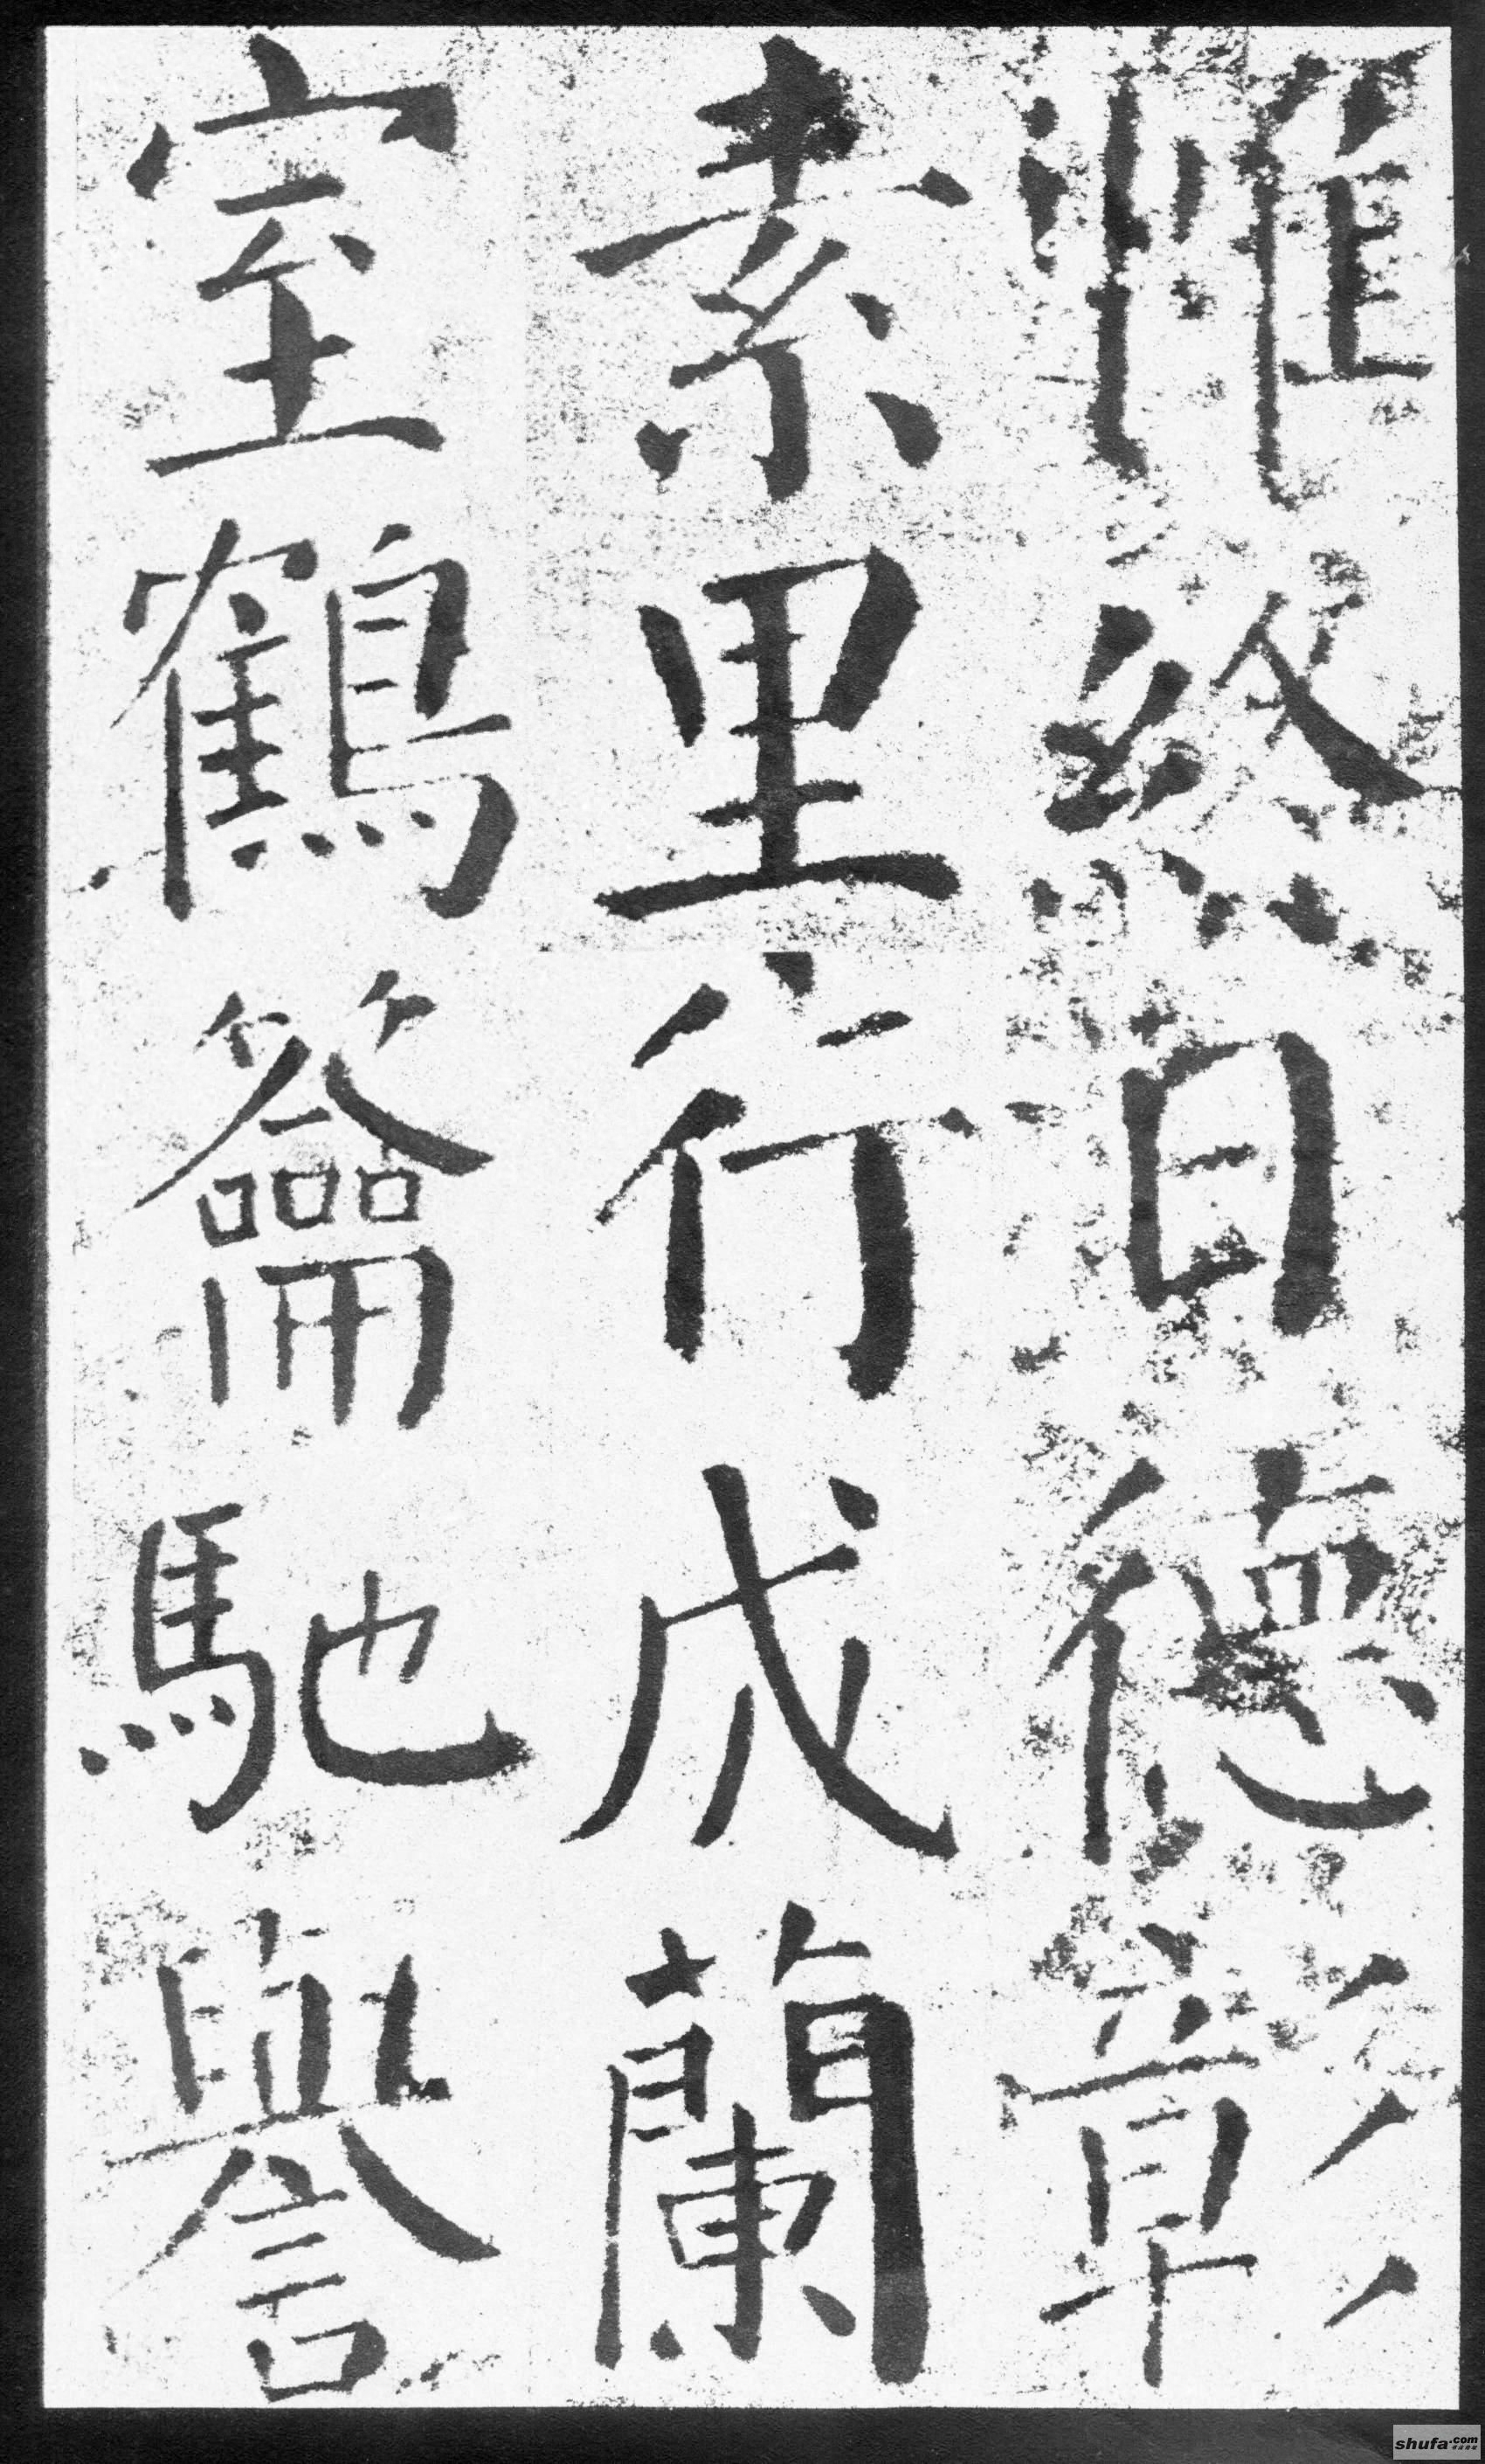 惟終日德彰
素里行成蘭
室鶴龠馳譽
shufa.com